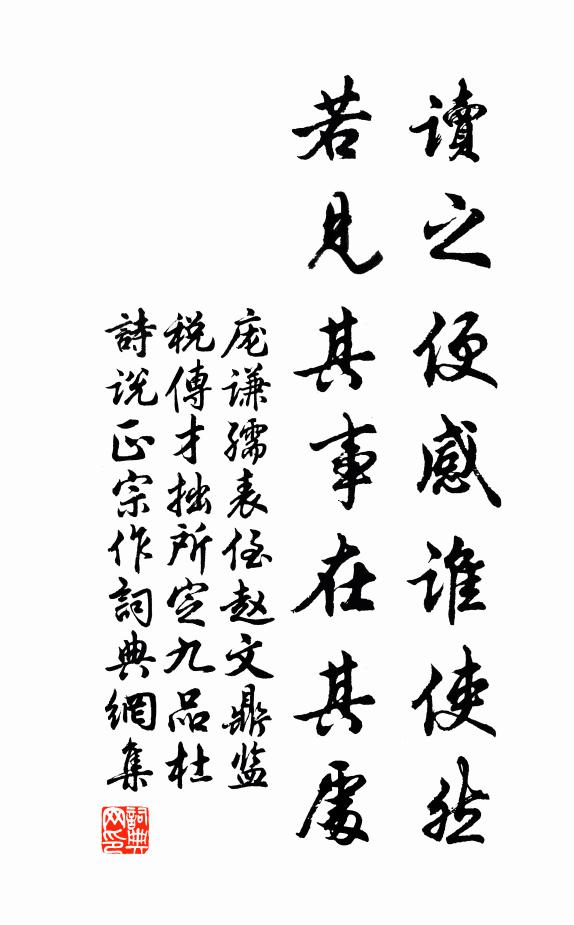 讀之便感誰使然
若見其事在其處
庞谦孺表侄赵文鼎监
税傳才拙所定九品杜
詩说正宗作詞典網集
詞典網印